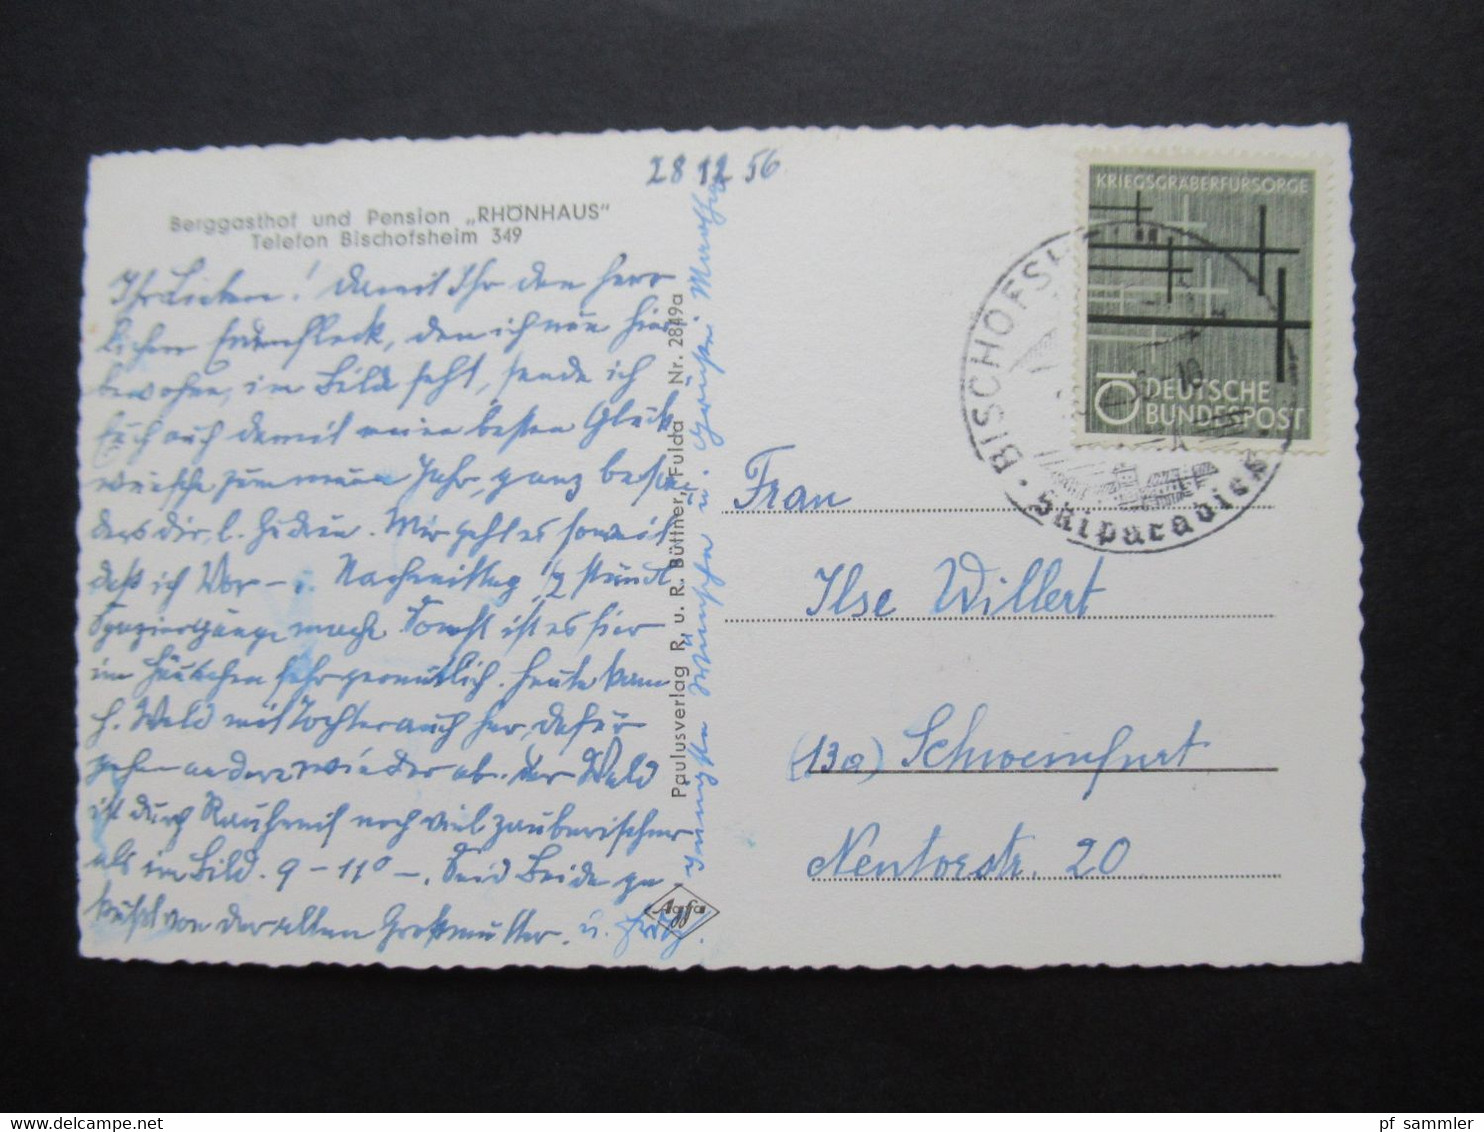 28 12 56
Berggasthof und Pension „RHÖNHAUS"
Telefon Bischofsheim 349
Ihr Lieben! Damit Ihr den herr
lichen Erdenfleck, den ich nun hier
bewohne, im Bild seht, sende ich
Euch auch damit meine besten Glück
wünsche zum neuen Jahr, ganz beson
ders dir, l. . Mir geht es soweit
daß ich Vor- u. Nachmittag ½ stündl.
Spaziergänge mache. Sonst ist es hier
im Häuschen sehr gemütlich. Heute kam
H. Wald mit Tochter auch her, dafür
gehen andere wieder ab. Der Wald
ist durch Rauhreif noch viel zauberischer
als im Bild. 9 - 11° -. Seid Beide ge
küßt von der alten Großmutter. u.
Wünsche u.
Paulusverlag R. u. R. Büttner, Fulda Nr. 2849a
Agfa
KRIEGSGRÄBERFÜRSORGE
10 DEUTSCHE
BUNDESPOST
BISCHOFSH
Skiparadies
Frau
Ilse Willert
(13a) Schweinfurt
Nentorstr. 20
© Delcampe.net
pf sammler